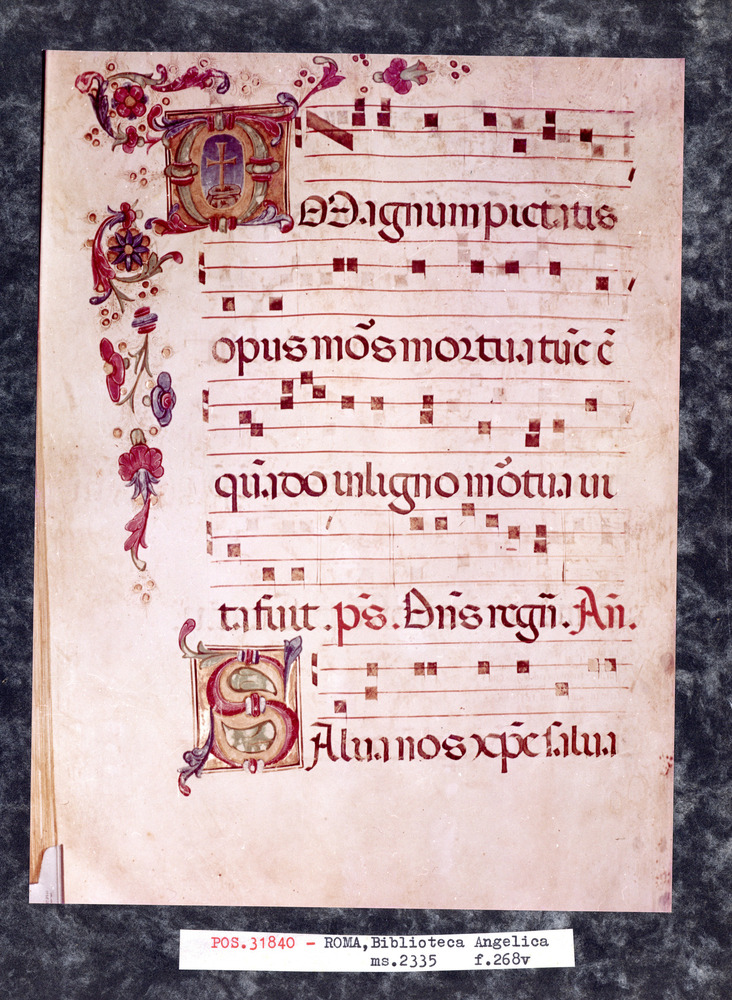 O Magnum pietatis
opus mōs mortua tūc ē
qūado in ligno mōtua ui
ta fuit. ps. Dn̄s regn̄. An̄.
SAlua nos xp̄e salua
POS.31840 - ROMA, Biblioteca Angelica
ms.2335 f.268v